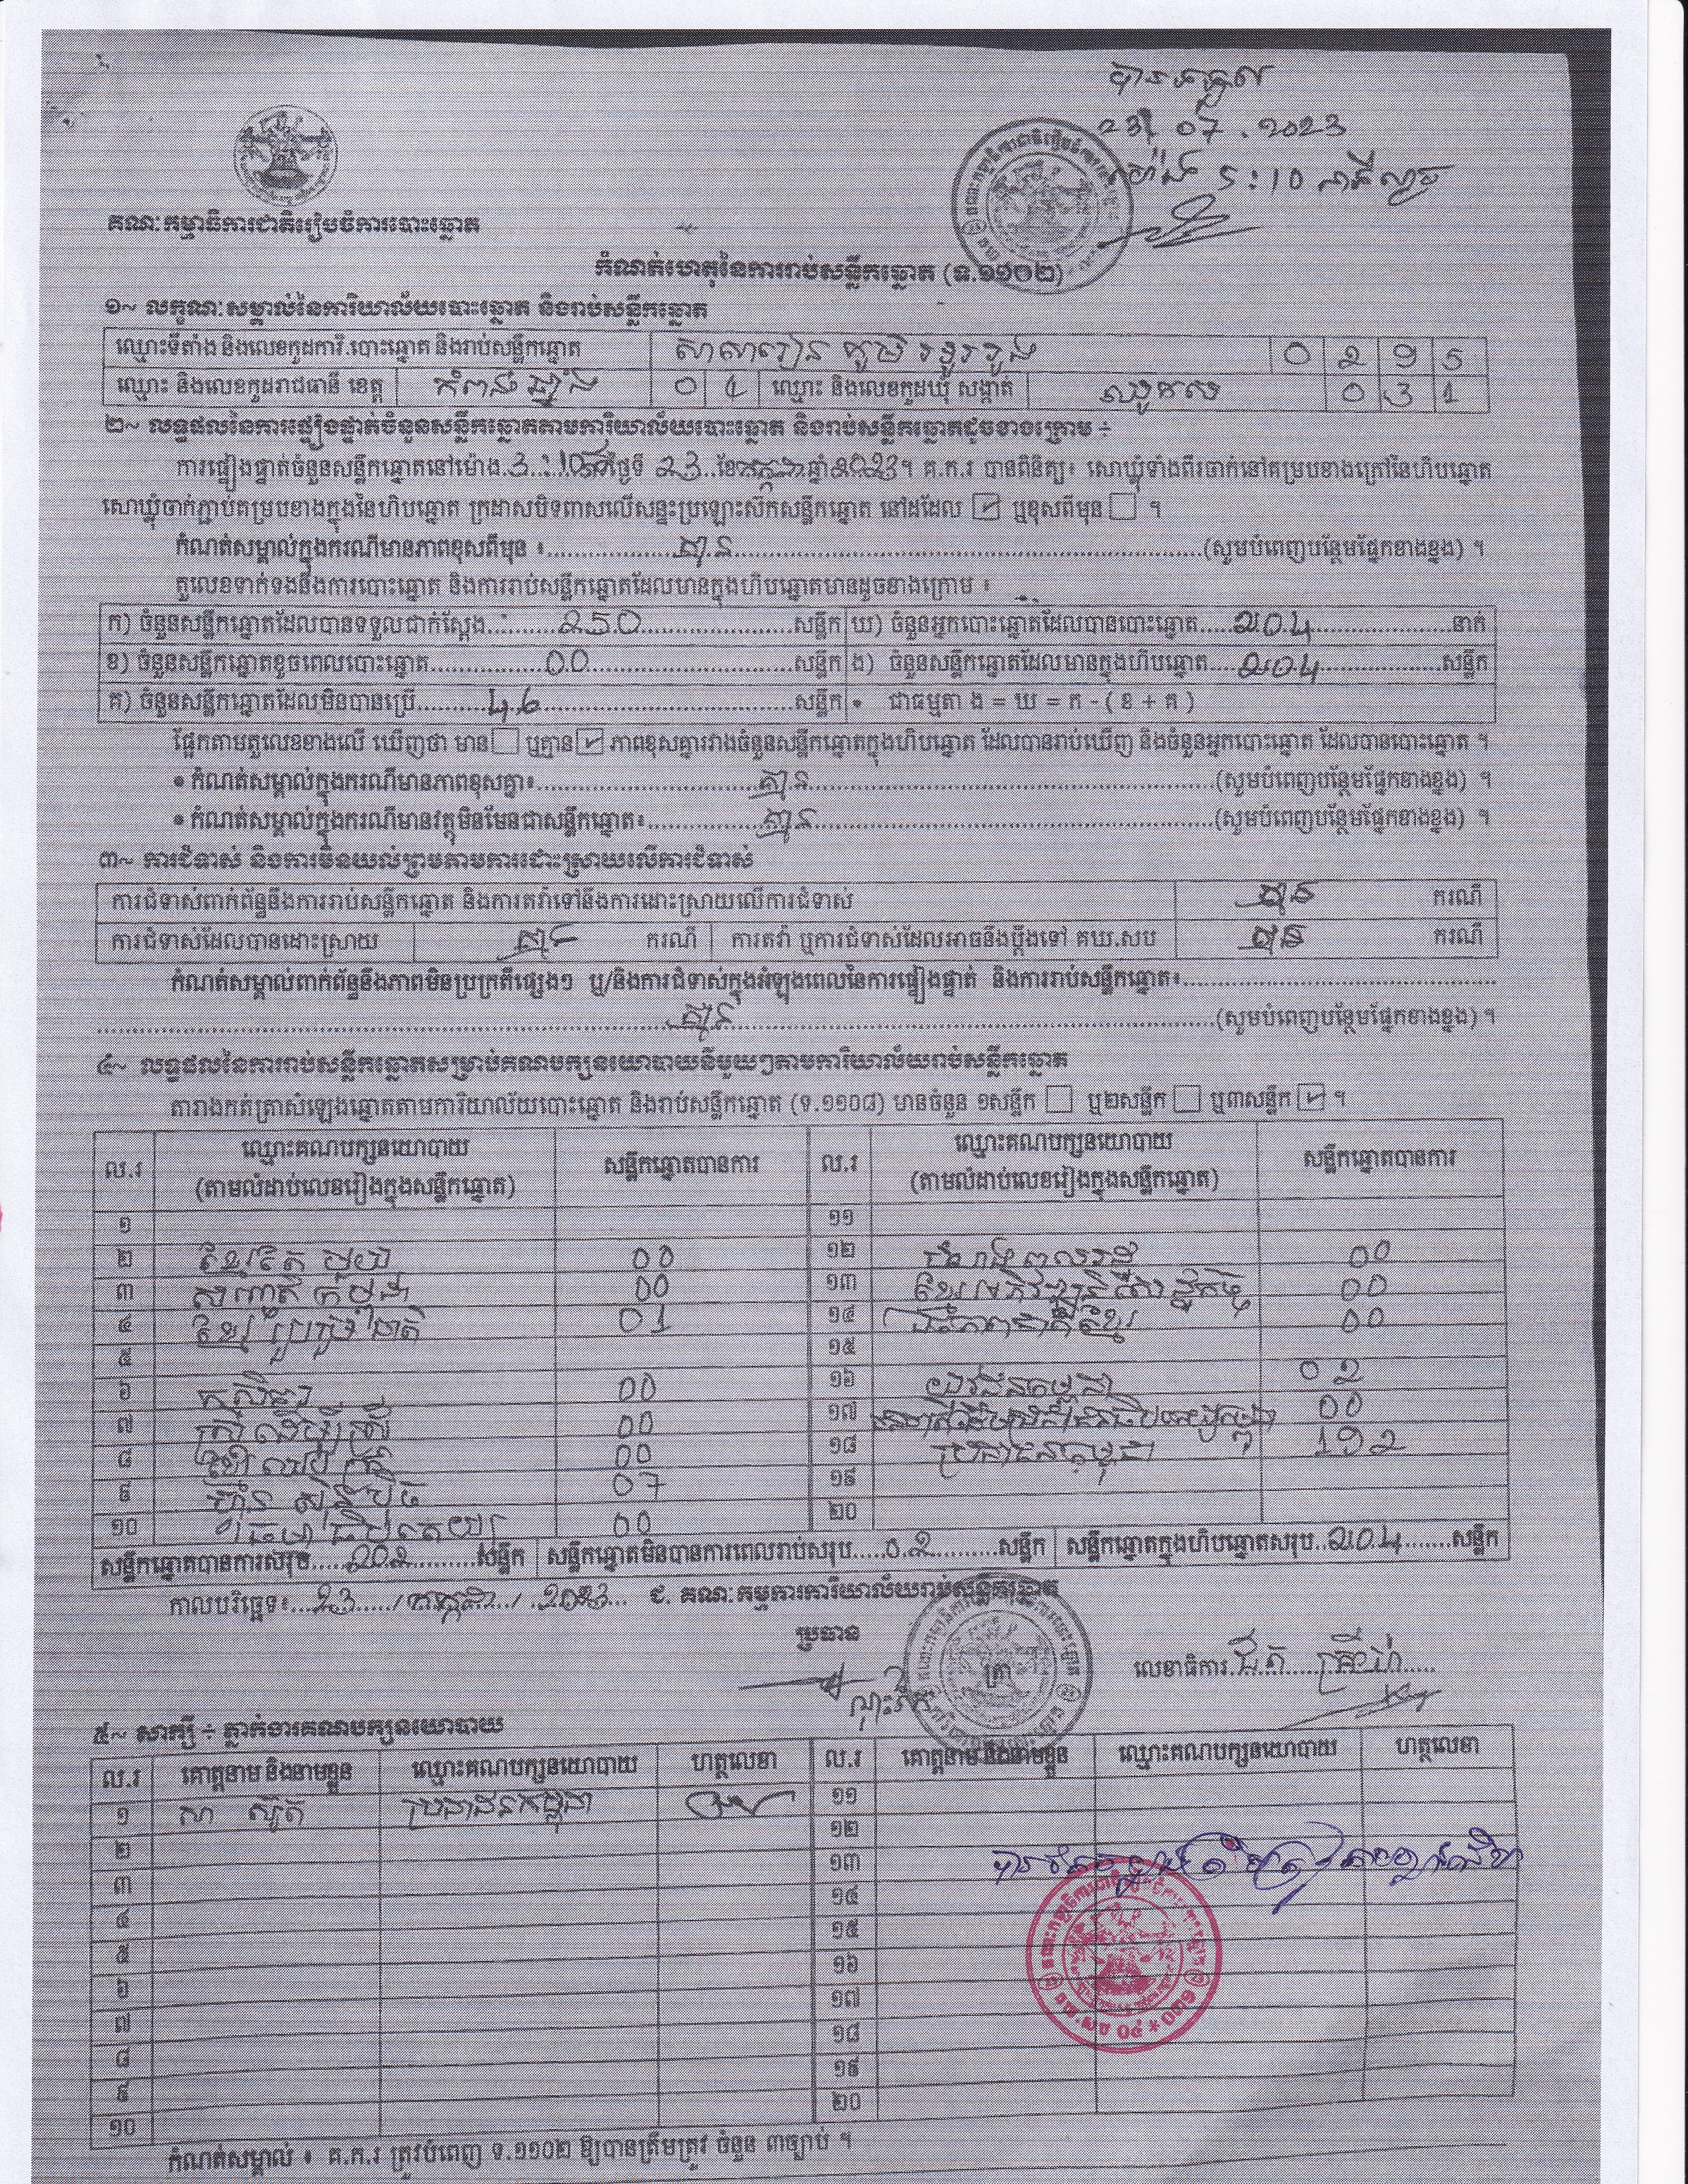 បានទទួល
23 07 . 2023
ម៉ោង 5:10 នាទីល្ងាច
គណៈកម្មាធិការជាតិរៀបចំការបោះឆ្នោត
កំណត់ហេតុនៃការរាប់សន្លឹកឆ្នោត (ទ.១១០២)
១~ លក្ខណៈសម្គាល់នៃការិយាល័យបោះឆ្នោត និងរាប់សន្លឹកឆ្នោត
ឈ្មោះទីតាំង និងលេខកូដការិ.បោះឆ្នោត និងរាប់សន្លឹកឆ្នោត សាលារៀន ភូមិ 0 2 9 5
ឈ្មោះ និងលេខកូដរាជធានី ខេត្ត កំពង់ឆ្នាំង 0 4 ឈ្មោះ និងលេខកូដឃុំ សង្កាត់ ឈូកស 0 3 1
២~ លទ្ធផលនៃការផ្ទៀងផ្ទាត់ចំនួនសន្លឹកឆ្នោតតាមការិយាល័យបោះឆ្នោត និងរាប់សន្លឹកឆ្នោតដូចខាងក្រោម ៖
ការផ្ទៀងផ្ទាត់ចំនួនសន្លឹកឆ្នោតនៅម៉ោង 3:10 ថ្ងៃទី 23 ខែ កក្កដា ឆ្នាំ 2023។ គ.ក.រ បានពិនិត្យ៖ សោឃ្លុំទាំងពីរចាក់នៅគម្របខាងក្រៅនៃហិបឆ្នោត
សោឃ្លុំចាក់ភ្ជាប់គម្របខាងក្នុងនៃហិបឆ្នោត ក្រដាសបិទពាសលើសន្ទះប្រឡោះស៊កសន្លឹកឆ្នោត នៅដដែល ☑ ឬខុសពីមុន ☐ ។
កំណត់សម្គាល់ក្នុងករណីមានភាពខុសពីមុន ៖ គ្មាន (សូមបំពេញបន្ថែមផ្នែកខាងខ្នង) ។
តួលេខទាក់ទងនឹងការបោះឆ្នោត និងការរាប់សន្លឹកឆ្នោតដែលមានក្នុងហិបឆ្នោតមានដូចខាងក្រោម ៖
ក) ចំនួនសន្លឹកឆ្នោតដែលបានទទួលជាក់ស្តែង 250 សន្លឹក ឃ) ចំនួនអ្នកបោះឆ្នោតដែលបានបោះឆ្នោត 204 នាក់
ខ) ចំនួនសន្លឹកឆ្នោតខូចពេលបោះឆ្នោត 00 សន្លឹក ង) ចំនួនសន្លឹកឆ្នោតដែលមានក្នុងហិបឆ្នោត 204 សន្លឹក
គ) ចំនួនសន្លឹកឆ្នោតដែលមិនបានប្រើ 46 សន្លឹក • ជាធម្មតា ង = ឃ = ក - ( ខ + គ )
ផ្អែកតាមតួលេខខាងលើ ឃើញថា មាន ☐ ឬគ្មាន ☑ ភាពខុសគ្នារវាងចំនួនសន្លឹកឆ្នោតក្នុងហិបឆ្នោត ដែលបានរាប់ឃើញ និងចំនួនអ្នកបោះឆ្នោត ដែលបានបោះឆ្នោត ។
• កំណត់សម្គាល់ក្នុងករណីមានភាពខុសគ្នា៖ គ្មាន (សូមបំពេញបន្ថែមផ្នែកខាងខ្នង) ។
• កំណត់សម្គាល់ក្នុងករណីមានវត្ថុមិនមែនជាសន្លឹកឆ្នោត៖ គ្មាន (សូមបំពេញបន្ថែមផ្នែកខាងខ្នង) ។
៣~ ការជំទាស់ និងការមិនយល់ព្រមតាមការដោះស្រាយលើការជំទាស់
ការជំទាស់ពាក់ព័ន្ធនឹងការរាប់សន្លឹកឆ្នោត និងការតវ៉ាទៅនឹងការដោះស្រាយលើការជំទាស់ គ្មាន ករណី
ការជំទាស់ដែលបានដោះស្រាយ គ្មាន ករណី ការតវ៉ា ឬការជំទាស់ដែលអាចនឹងប្តឹងទៅ គឃ.សប គ្មាន ករណី
កំណត់សម្គាល់ពាក់ព័ន្ធនឹងភាពមិនប្រក្រតីផ្សេងៗ ឬ/និងការជំទាស់ក្នុងអំឡុងពេលនៃការផ្ទៀងផ្ទាត់ និងការរាប់សន្លឹកឆ្នោត៖
គ្មាន (សូមបំពេញបន្ថែមផ្នែកខាងខ្នង) ។
៤~ លទ្ធផលនៃការរាប់សន្លឹកឆ្នោតសម្រាប់គណបក្សនយោបាយនីមួយៗតាមការិយាល័យរាប់សន្លឹកឆ្នោត
តារាងកត់ត្រាសំឡេងឆ្នោតតាមការិយាល័យបោះឆ្នោត និងរាប់សន្លឹកឆ្នោត (ទ.១១០៨) មានចំនួន ១សន្លឹក ☐ ឬ២សន្លឹក ☐ ឬ៣សន្លឹក ☑ ។
ល.រ ឈ្មោះគណបក្សនយោបាយ (តាមលំដាប់លេខរៀងក្នុងសន្លឹកឆ្នោត) សន្លឹកឆ្នោតបានការ ល.រ ឈ្មោះគណបក្សនយោបាយ (តាមលំដាប់លេខរៀងក្នុងសន្លឹកឆ្នោត) សន្លឹកឆ្នោតបានការ
១ ១១
២ ខ្មែរតែមួយ 00 ១២ 00
៣ សញ្ជាតិកម្ពុជា 00 ១៣ ខ្មែរអភិវឌ្ឍន៍សេដ្ឋកិច្ច 00
៤ ខ្មែររួបរួមជាតិ 01 ១៤ ឯកភាពជាតិខ្មែរ 00
៥ ១៥
៦ កសិករ 00 ១៦ យុវជនកម្ពុជា 02
៧ ស្ត្រីដើម្បីស្ត្រី 00 ១៧ 00
៨ 00 ១៨ ប្រជាជនកម្ពុជា 192
៩ ហ៊្វុនស៊ិនប៉ិច 07 ១៩
១០ ធម្មាធិបតេយ្យ 00 ២០
សន្លឹកឆ្នោតបានការសរុប 202 សន្លឹក សន្លឹកឆ្នោតមិនបានការពេលរាប់សរុប 02 សន្លឹក សន្លឹកឆ្នោតក្នុងហិបឆ្នោតសរុប 204 សន្លឹក
កាលបរិច្ឆេទ៖ 23 / កក្កដា / 2023 ជ. គណៈកម្មការការិយាល័យរាប់សន្លឹកឆ្នោត
ប្រធាន
លេខាធិការ
៥~ សាក្សី ៖ ភ្នាក់ងារគណបក្សនយោបាយ
ល.រ គោត្តនាម និងនាមខ្លួន ឈ្មោះគណបក្សនយោបាយ ហត្ថលេខា ល.រ គោត្តនាម និងនាមខ្លួន ឈ្មោះគណបក្សនយោបាយ ហត្ថលេខា
១ ប្រជាជនកម្ពុជា ១១
២ ១២
៣ ១៣
៤ ១៤
៥ ១៥
៦ ១៦
៧ ១៧
៨ ១៨
៩ ១៩
១០ ២០
កំណត់សម្គាល់ ៖ គ.ក.រ ត្រូវបំពេញ ទ.១១០២ ឱ្យបានត្រឹមត្រូវ ចំនួន ៣ច្បាប់ ។